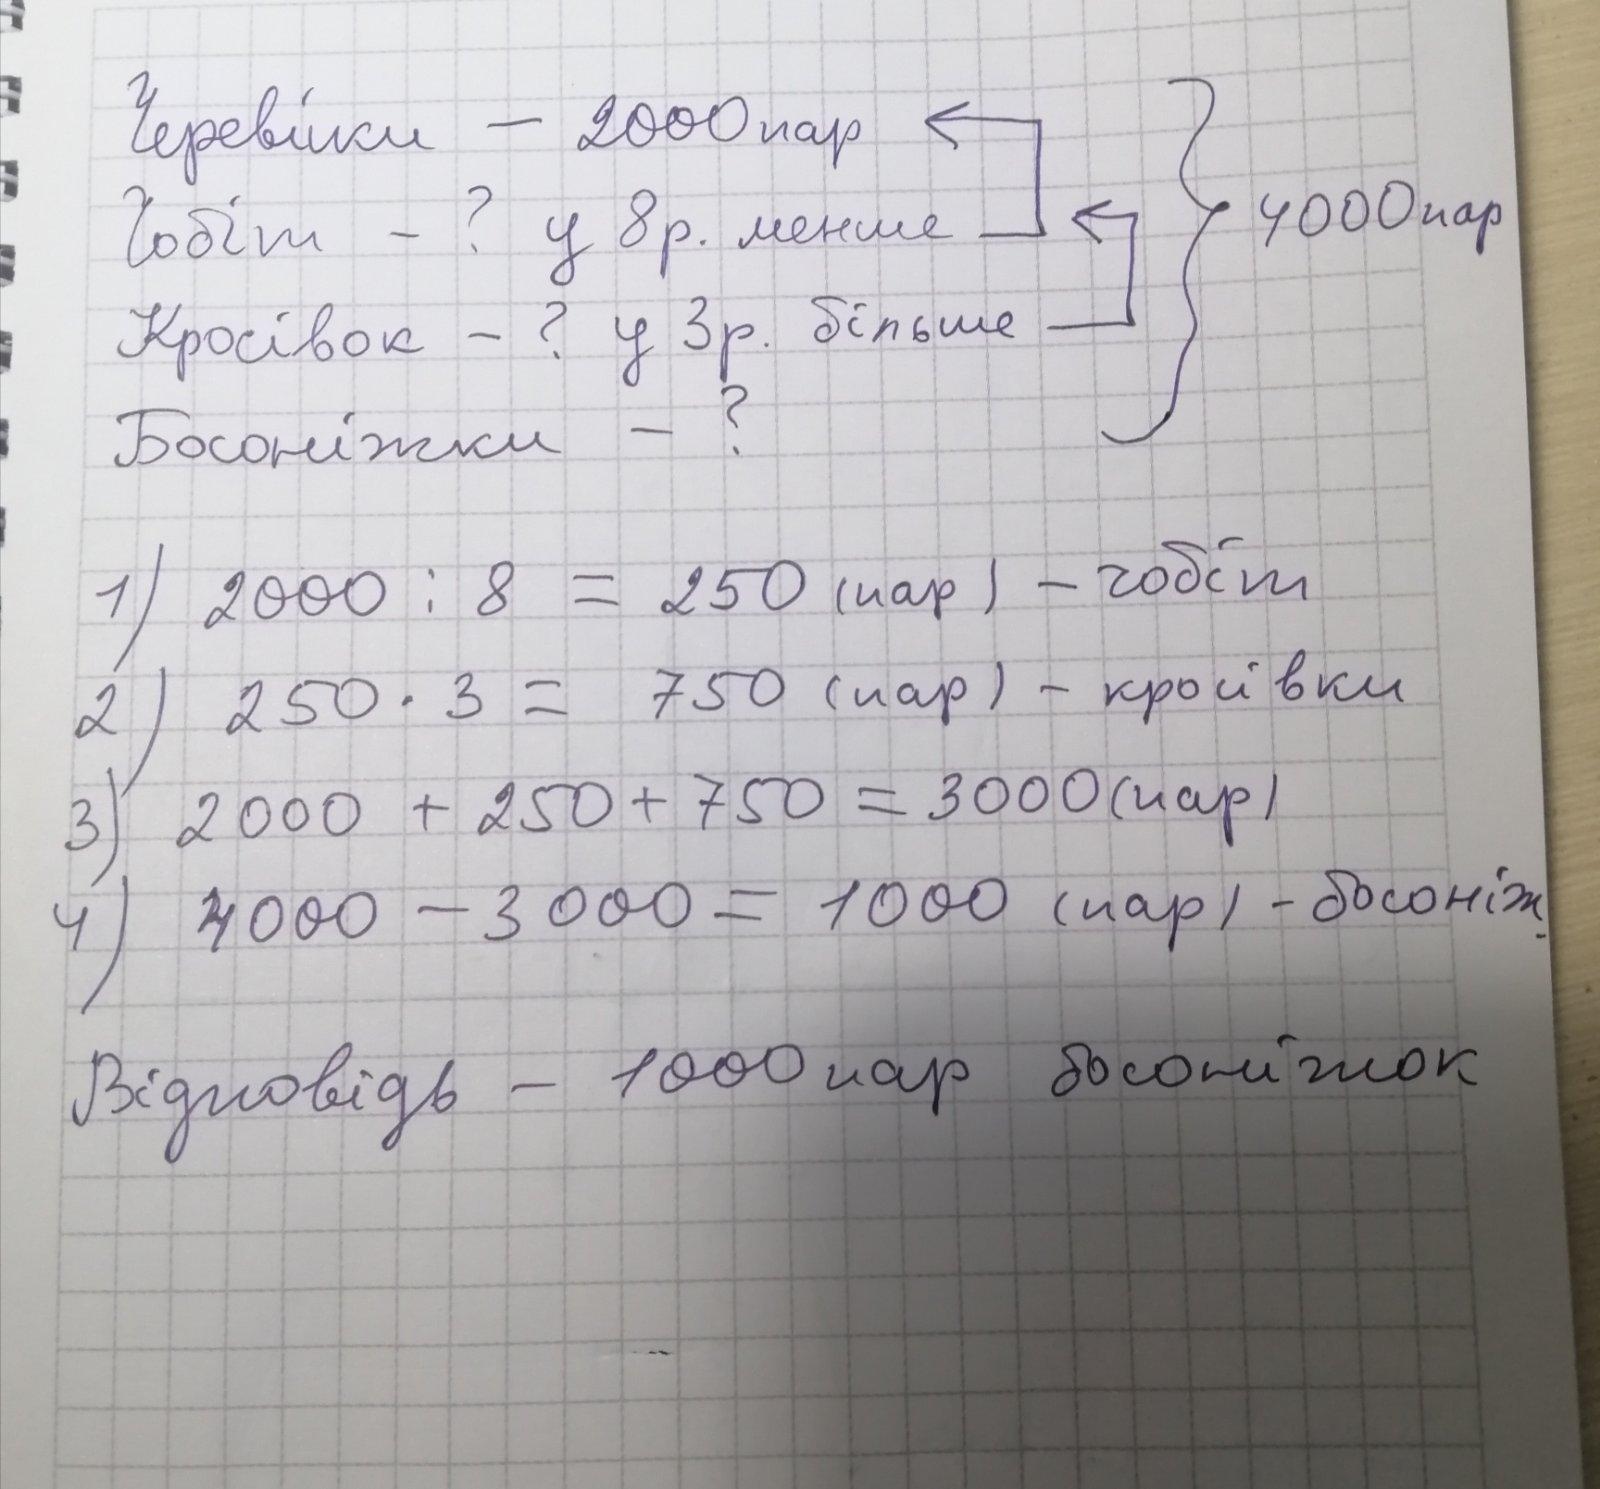 Черевики – 2000 пар
Чобіт – ? у 8 р. менше
4000 пар
Кросівок – ? у 3 р. більше
Босоніжки – ?
1) 2000 : 8 = 250 (пар) – чобіт
2) 250 · 3 = 750 (пар) – кросівки
3) 2000 + 250 + 750 = 3000 (пар)
4) 4000 – 3000 = 1000 (пар) – босоніж.
Відповідь – 1000 пар босоніжок